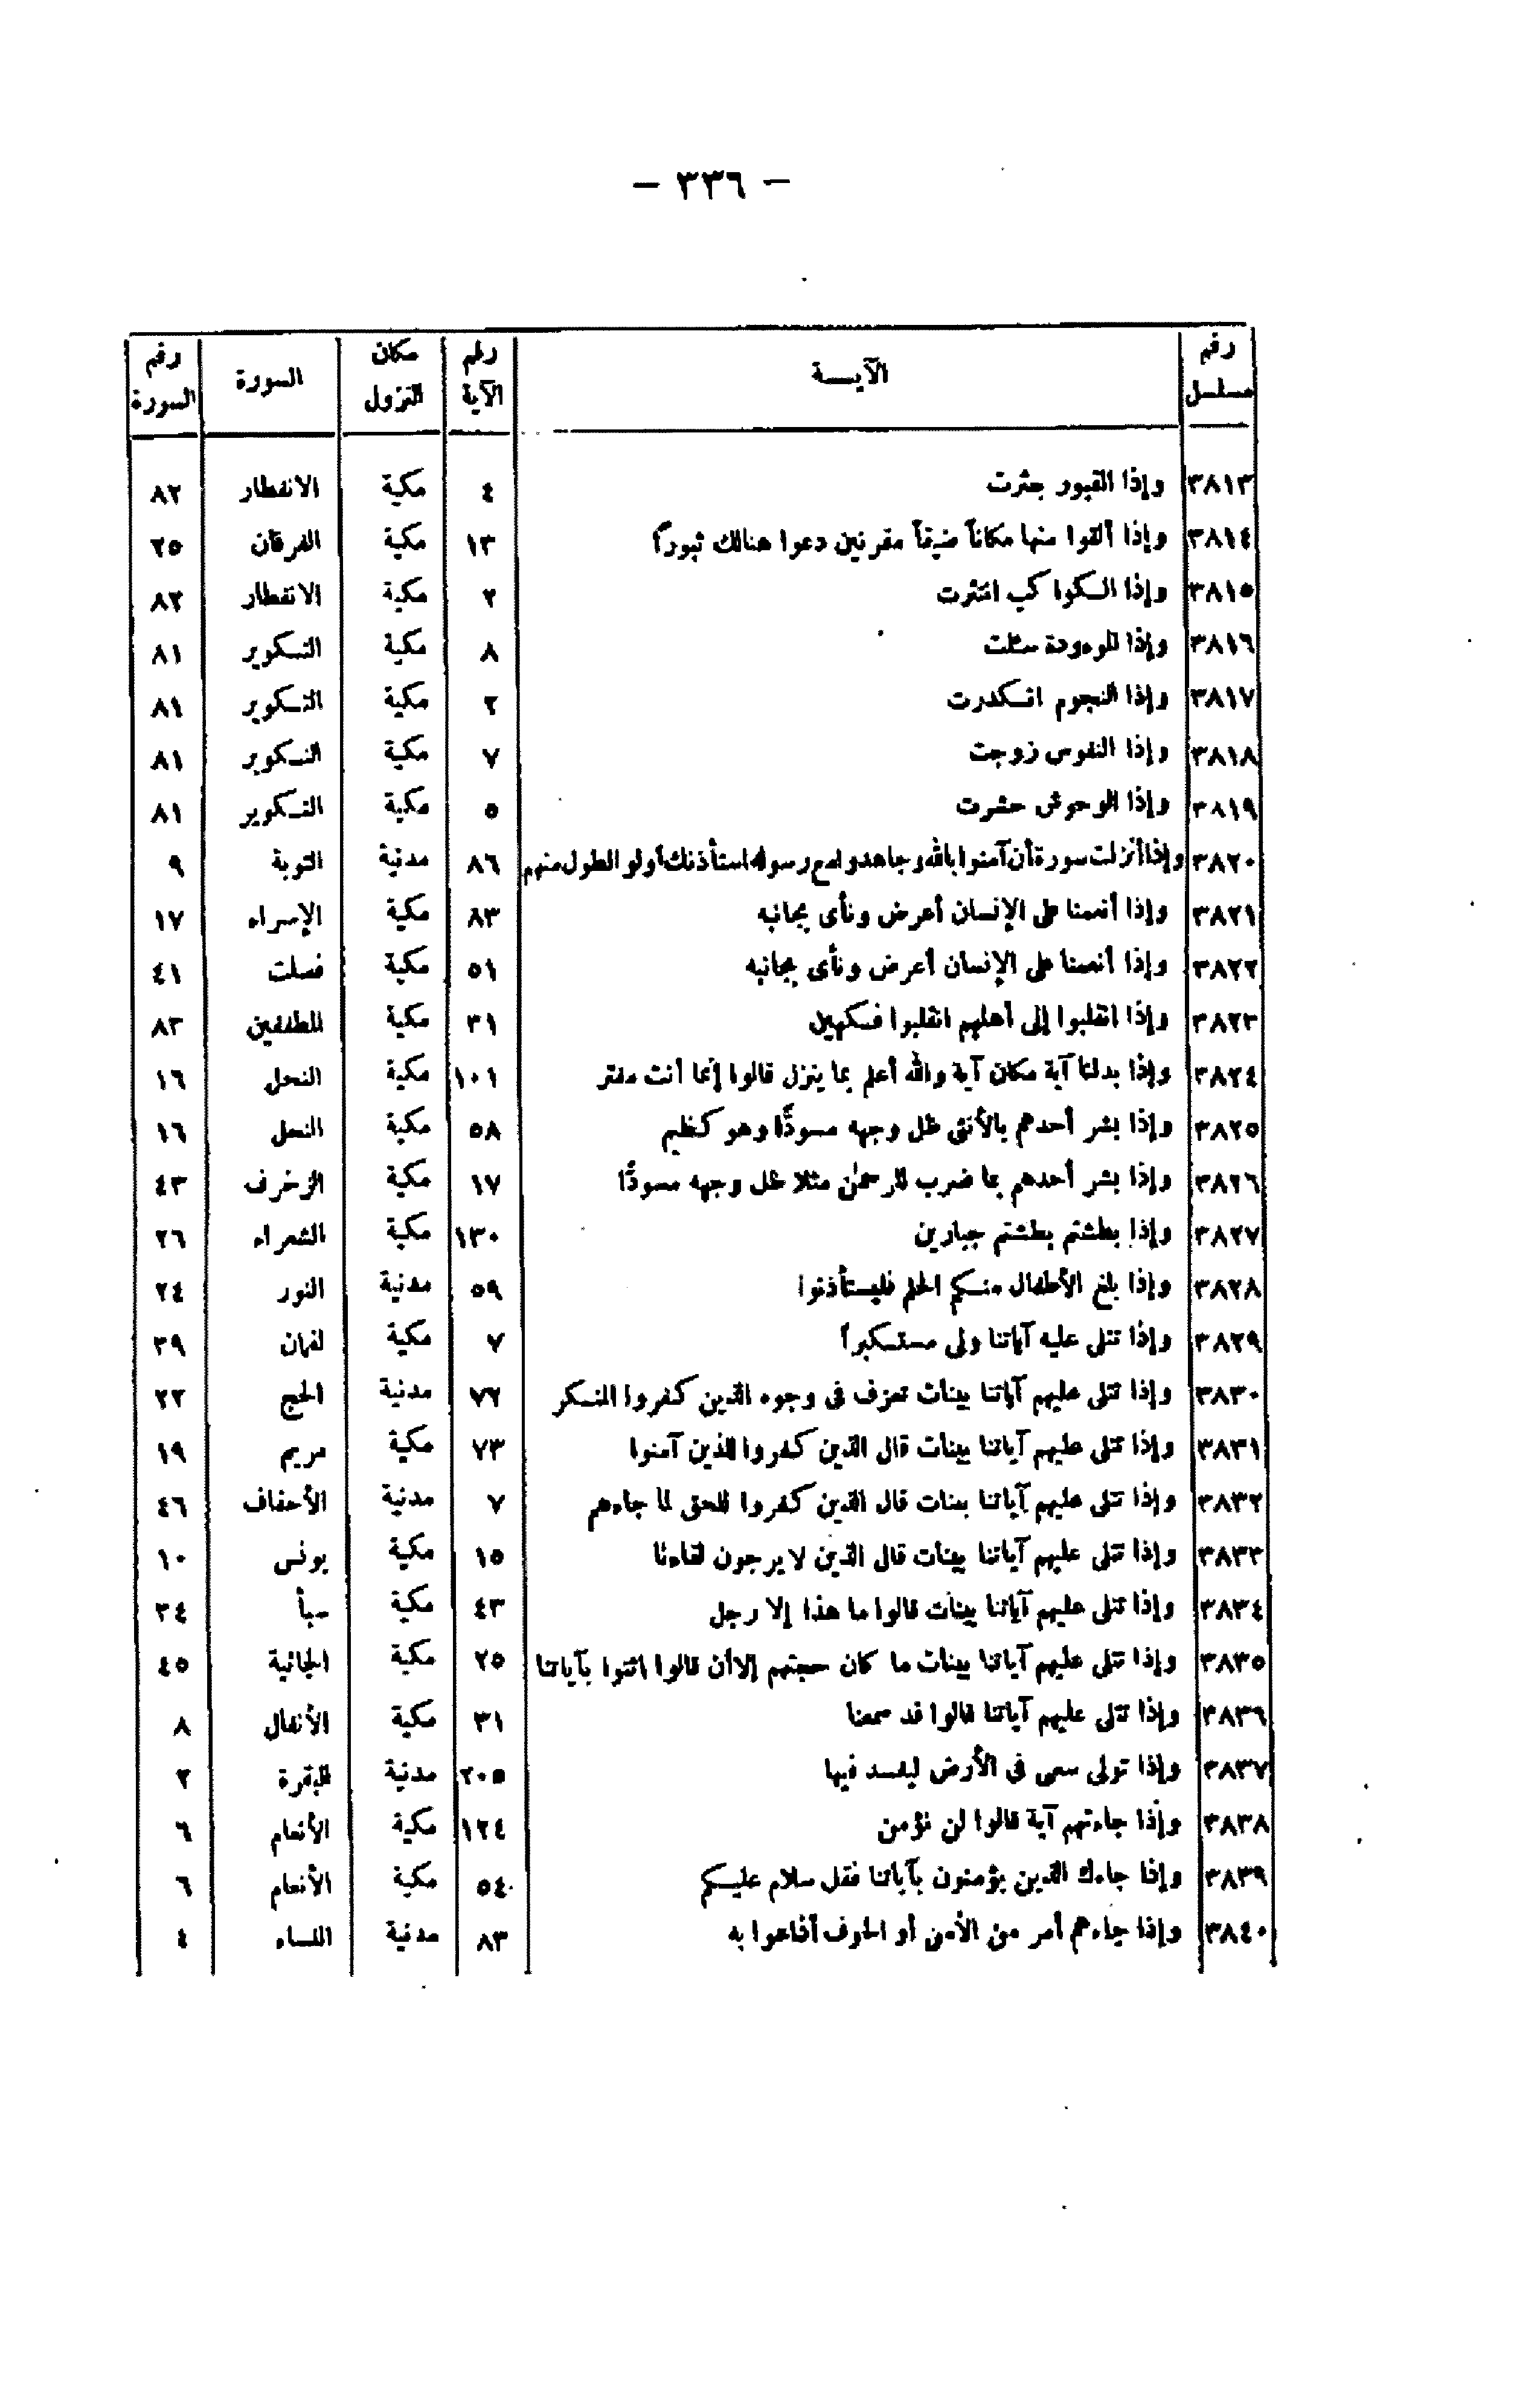 — ٣٣٦ —
رقم مسلسل	الآيــة	رقم الآية	مكان النزول	السورة	رقم السورة
٣٨١٣	وإذا القبور بعثرت	٤	مكية	الانفطار	٨٢
٣٨١٤	وإذا ألقوا منها مكاناً ضيقاً مقرنين دعوا هنالك ثبوراً	١٣	مكية	الفرقان	٢٥
٣٨١٥	وإذا الكواكب انتثرت	٢	مكية	الانفطار	٨٢
٣٨١٦	وإذا الموءودة سئلت	٨	مكية	التكوير	٨١
٣٨١٧	وإذا النجوم انكدرت	٢	مكية	التكوير	٨١
٣٨١٨	وإذا النفوس زوجت	٧	مكية	التكوير	٨١
٣٨١٩	وإذا الوحوش حشرت	٥	مكية	التكوير	٨١
٣٨٢٠	وإذا أنزلت سورة أن آمنوا بالله وجاهدوا مع رسوله استأذنك أولو الطول منهم	٨٦	مدنية	التوبة	٩
٣٨٢١	وإذا أنعمنا على الإنسان أعرض ونأى بجانبه	٨٣	مكية	الإسراء	١٧
٣٨٢٢	وإذا أنعمنا على الإنسان أعرض ونأى بجانبه	٥١	مكية	فصلت	٤١
٣٨٢٣	وإذا انقلبوا إلى أهلهم انقلبوا فكهين	٣١	مكية	المطففين	٨٣
٣٨٢٤	وإذا بدلنا آية مكان آية والله أعلم بما ينزل قالوا إنما أنت مفتر	١٠١	مكية	النحل	١٦
٣٨٢٥	وإذا بشر أحدهم بالأنثى ظل وجهه مسودًّا وهو كظيم	٥٨	مكية	النحل	١٦
٣٨٢٦	وإذا بشر أحدهم بما ضرب للرحمن مثلا ظل وجهه مسودًّا	١٧	مكية	الزخرف	٤٣
٣٨٢٧	وإذا بطشتم بطشتم جبارين	١٣٠	مكية	الشعراء	٢٦
٣٨٢٨	وإذا بلغ الأطفال منكم الحلم فليستأذنوا	٥٩	مدنية	النور	٢٤
٣٨٢٩	وإذا تتلى عليه آياتنا ولى مستكبراً	٧	مكية	لقمان	٣٩
٣٨٣٠	وإذا تتلى عليهم آياتنا بينات تعرف فى وجوه الذين كفروا المنكر	٧٢	مدنية	الحج	٢٢
٣٨٣١	وإذا تتلى عليهم آياتنا بينات قال الذين كفروا للذين آمنوا	٧٣	مكية	مريم	١٩
٣٨٣٢	وإذا تتلى عليهم آياتنا بينات قال الذين كفروا للحق لما جاءهم	٧	مدنية	الأحقاف	٤٦
٣٨٣٣	وإذا تتلى عليهم آياتنا بينات قال الذين لا يرجون لقاءنا	١٥	مكية	يونس	١٠
٣٨٣٤	وإذا تتلى عليهم آياتنا بينات قالوا ما هذا إلا رجل	٤٣	مكية	سبأ	٣٤
٣٨٣٥	وإذا تتلى عليهم آياتنا بينات ما كان حجتهم إلا أن قالوا ائتوا بآياتنا	٢٥	مكية	الجاثية	٤٥
٣٨٣٦	وإذا تتلى عليهم آياتنا قالوا قد سمعنا	٣١	مكية	الأنفال	٨
٣٨٣٧	وإذا تولى سعى فى الأرض ليفسد فيها	٢٠٥	مدنية	البقرة	٢
٣٨٣٨	وإذا جاءتهم آية قالوا لن نؤمن	١٢٤	مكية	الأنعام	٦
٣٨٣٩	وإذا جاءك الذين يؤمنون بآياتنا فقل سلام عليكم	٥٤	مكية	الأنعام	٦
٣٨٤٠	وإذا جاءهم أمر من الأمن أو الخوف أذاعوا به	٨٣	مدنية	النساء	٤